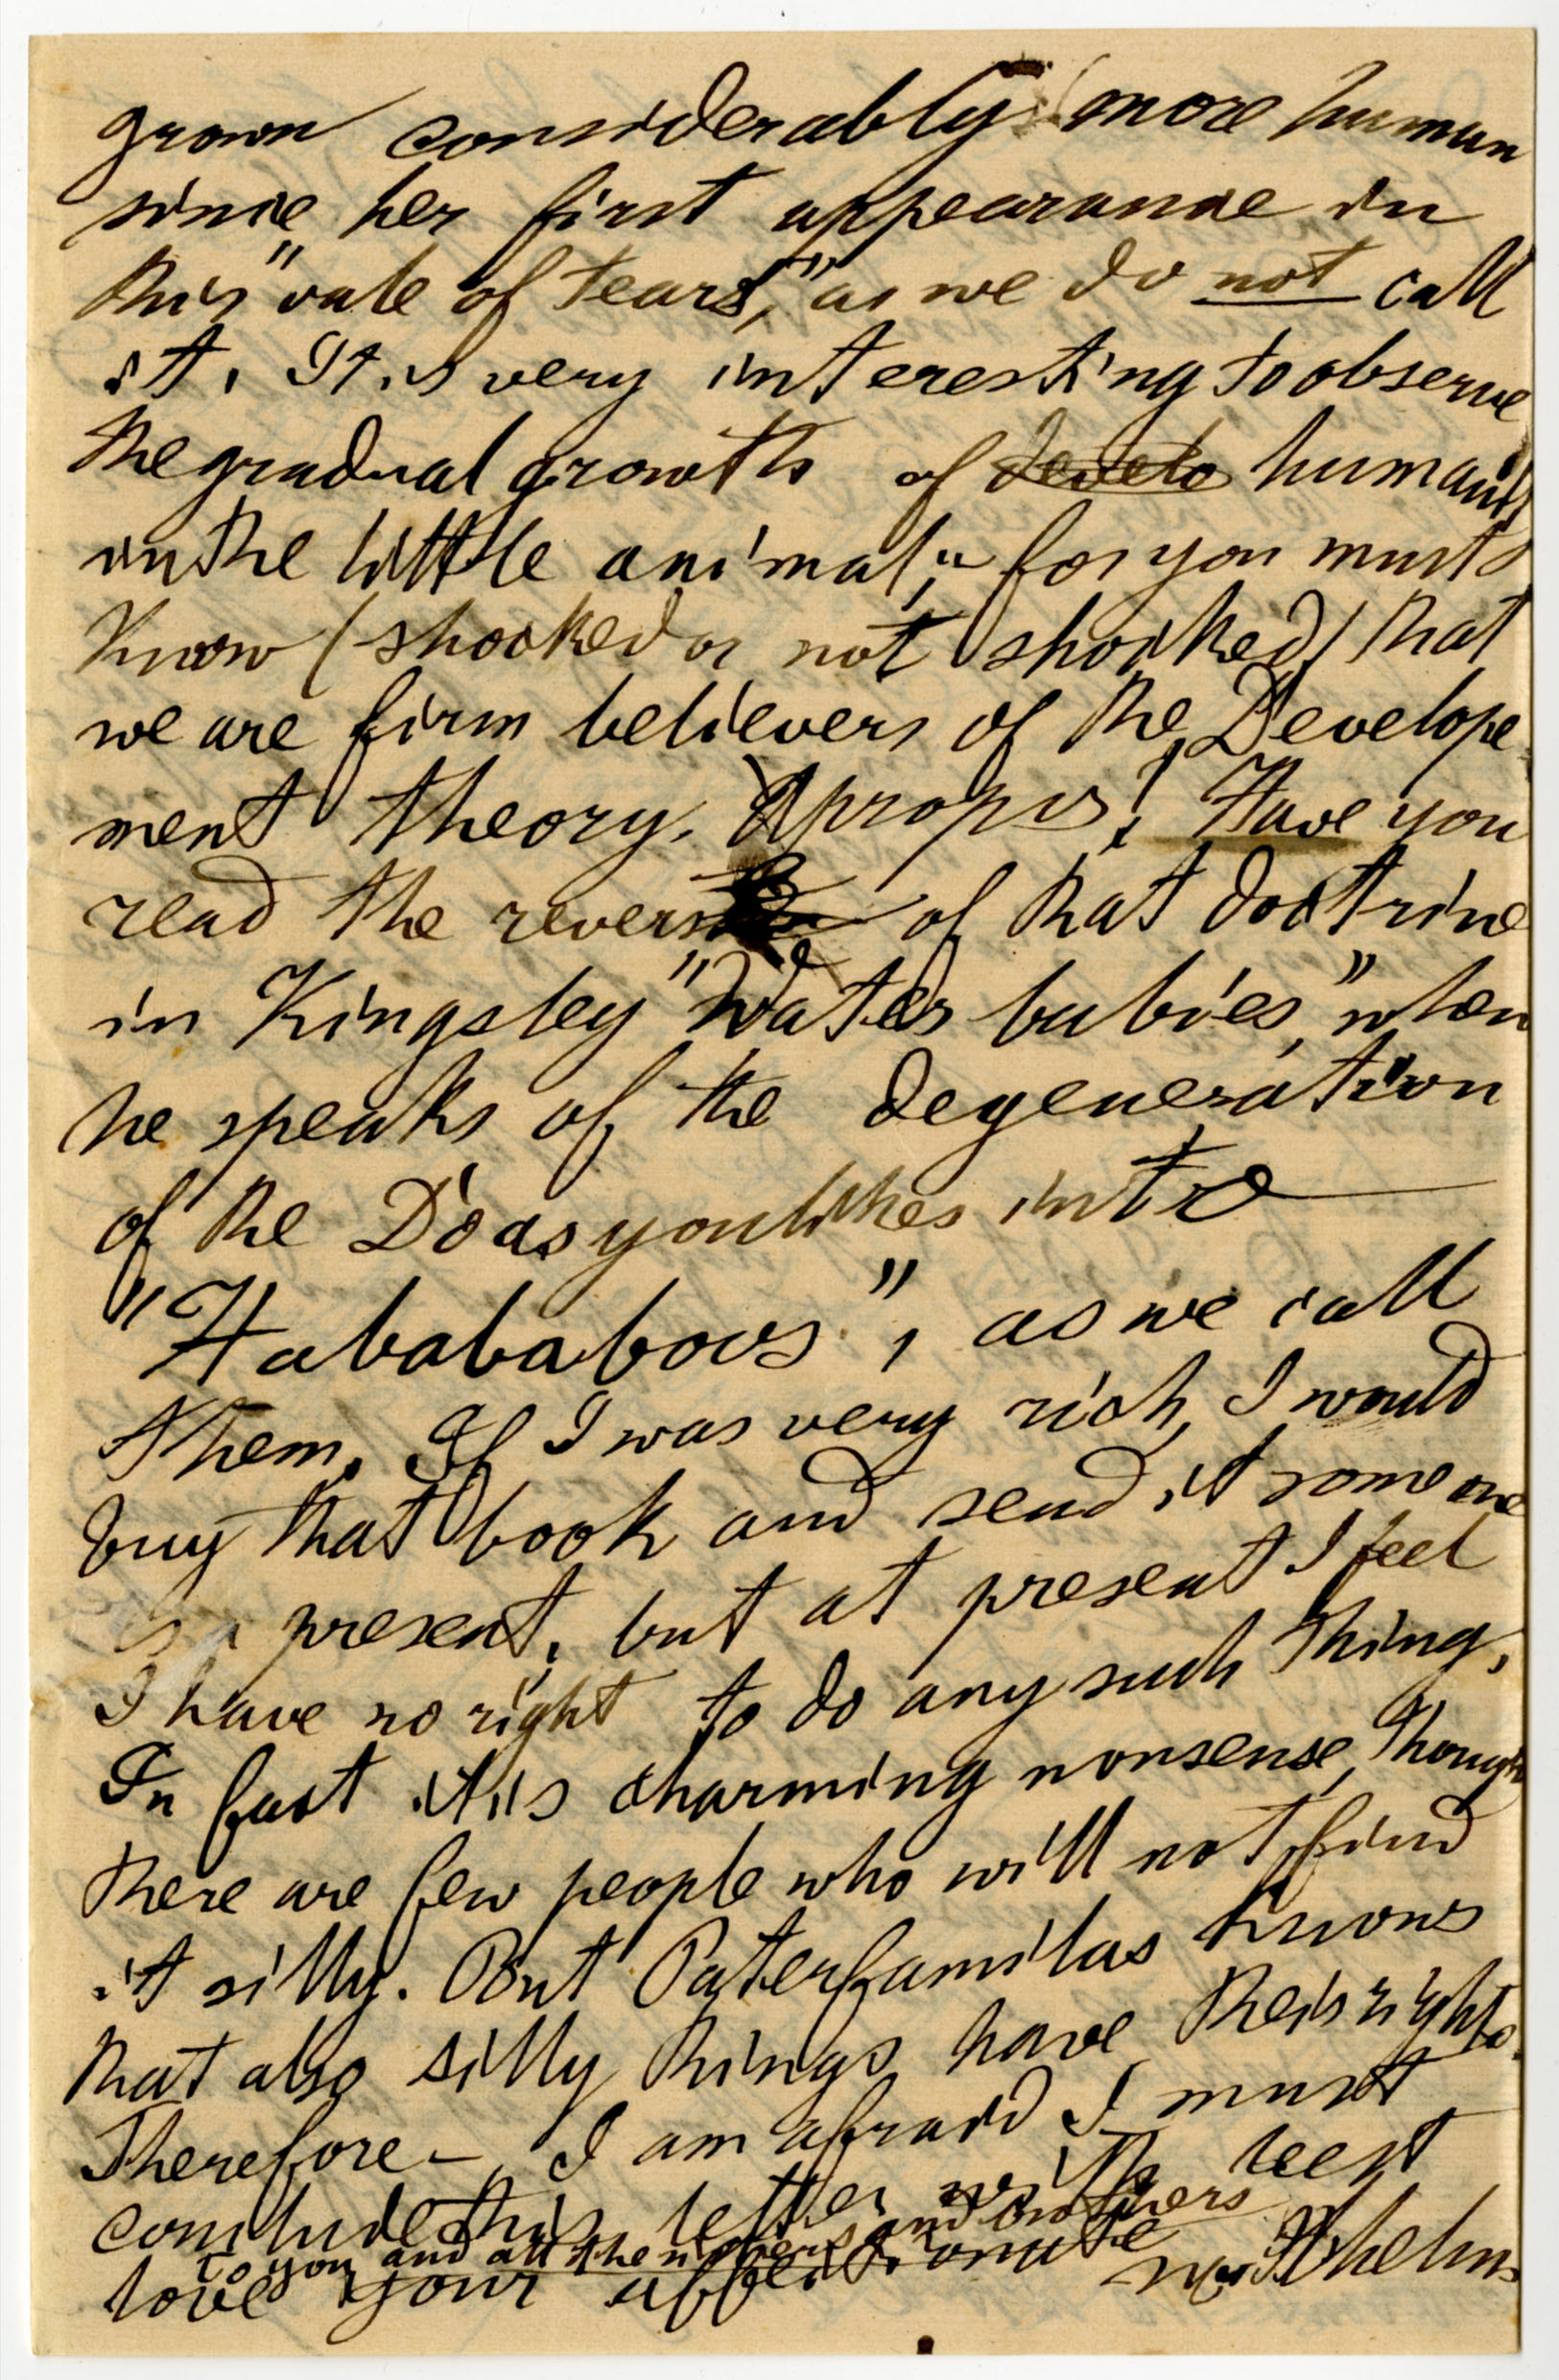 grown considerably more human
since her first appearance in
this "vale of tears," as we do not call
it. It is very interesting to observe
the gradual growth of develo humanity
in the little animal; for you must
know (shocked or not shocked) that
we are firm believers of the Develope
ment theory. Apropos! Have you
read the reverse of that doctrine
in Kingsley "Water babies," when
he speaks of the degeneration
of the Doasyoulikes into
"Habababoos", as we call
them. If I was very rich, I would
buy that book and send it some one
as a present, but at present I feel
I have no right to do any such thing.
In fact it is charming nonsense, though
there are few people who will not find
it silly. But Paterfamilas knows
that also silly things have their rights.
Therefore - I am afraid I must
conclude this letter with best
to you and all the sisters and brothers
love your affectionate Wilhelm